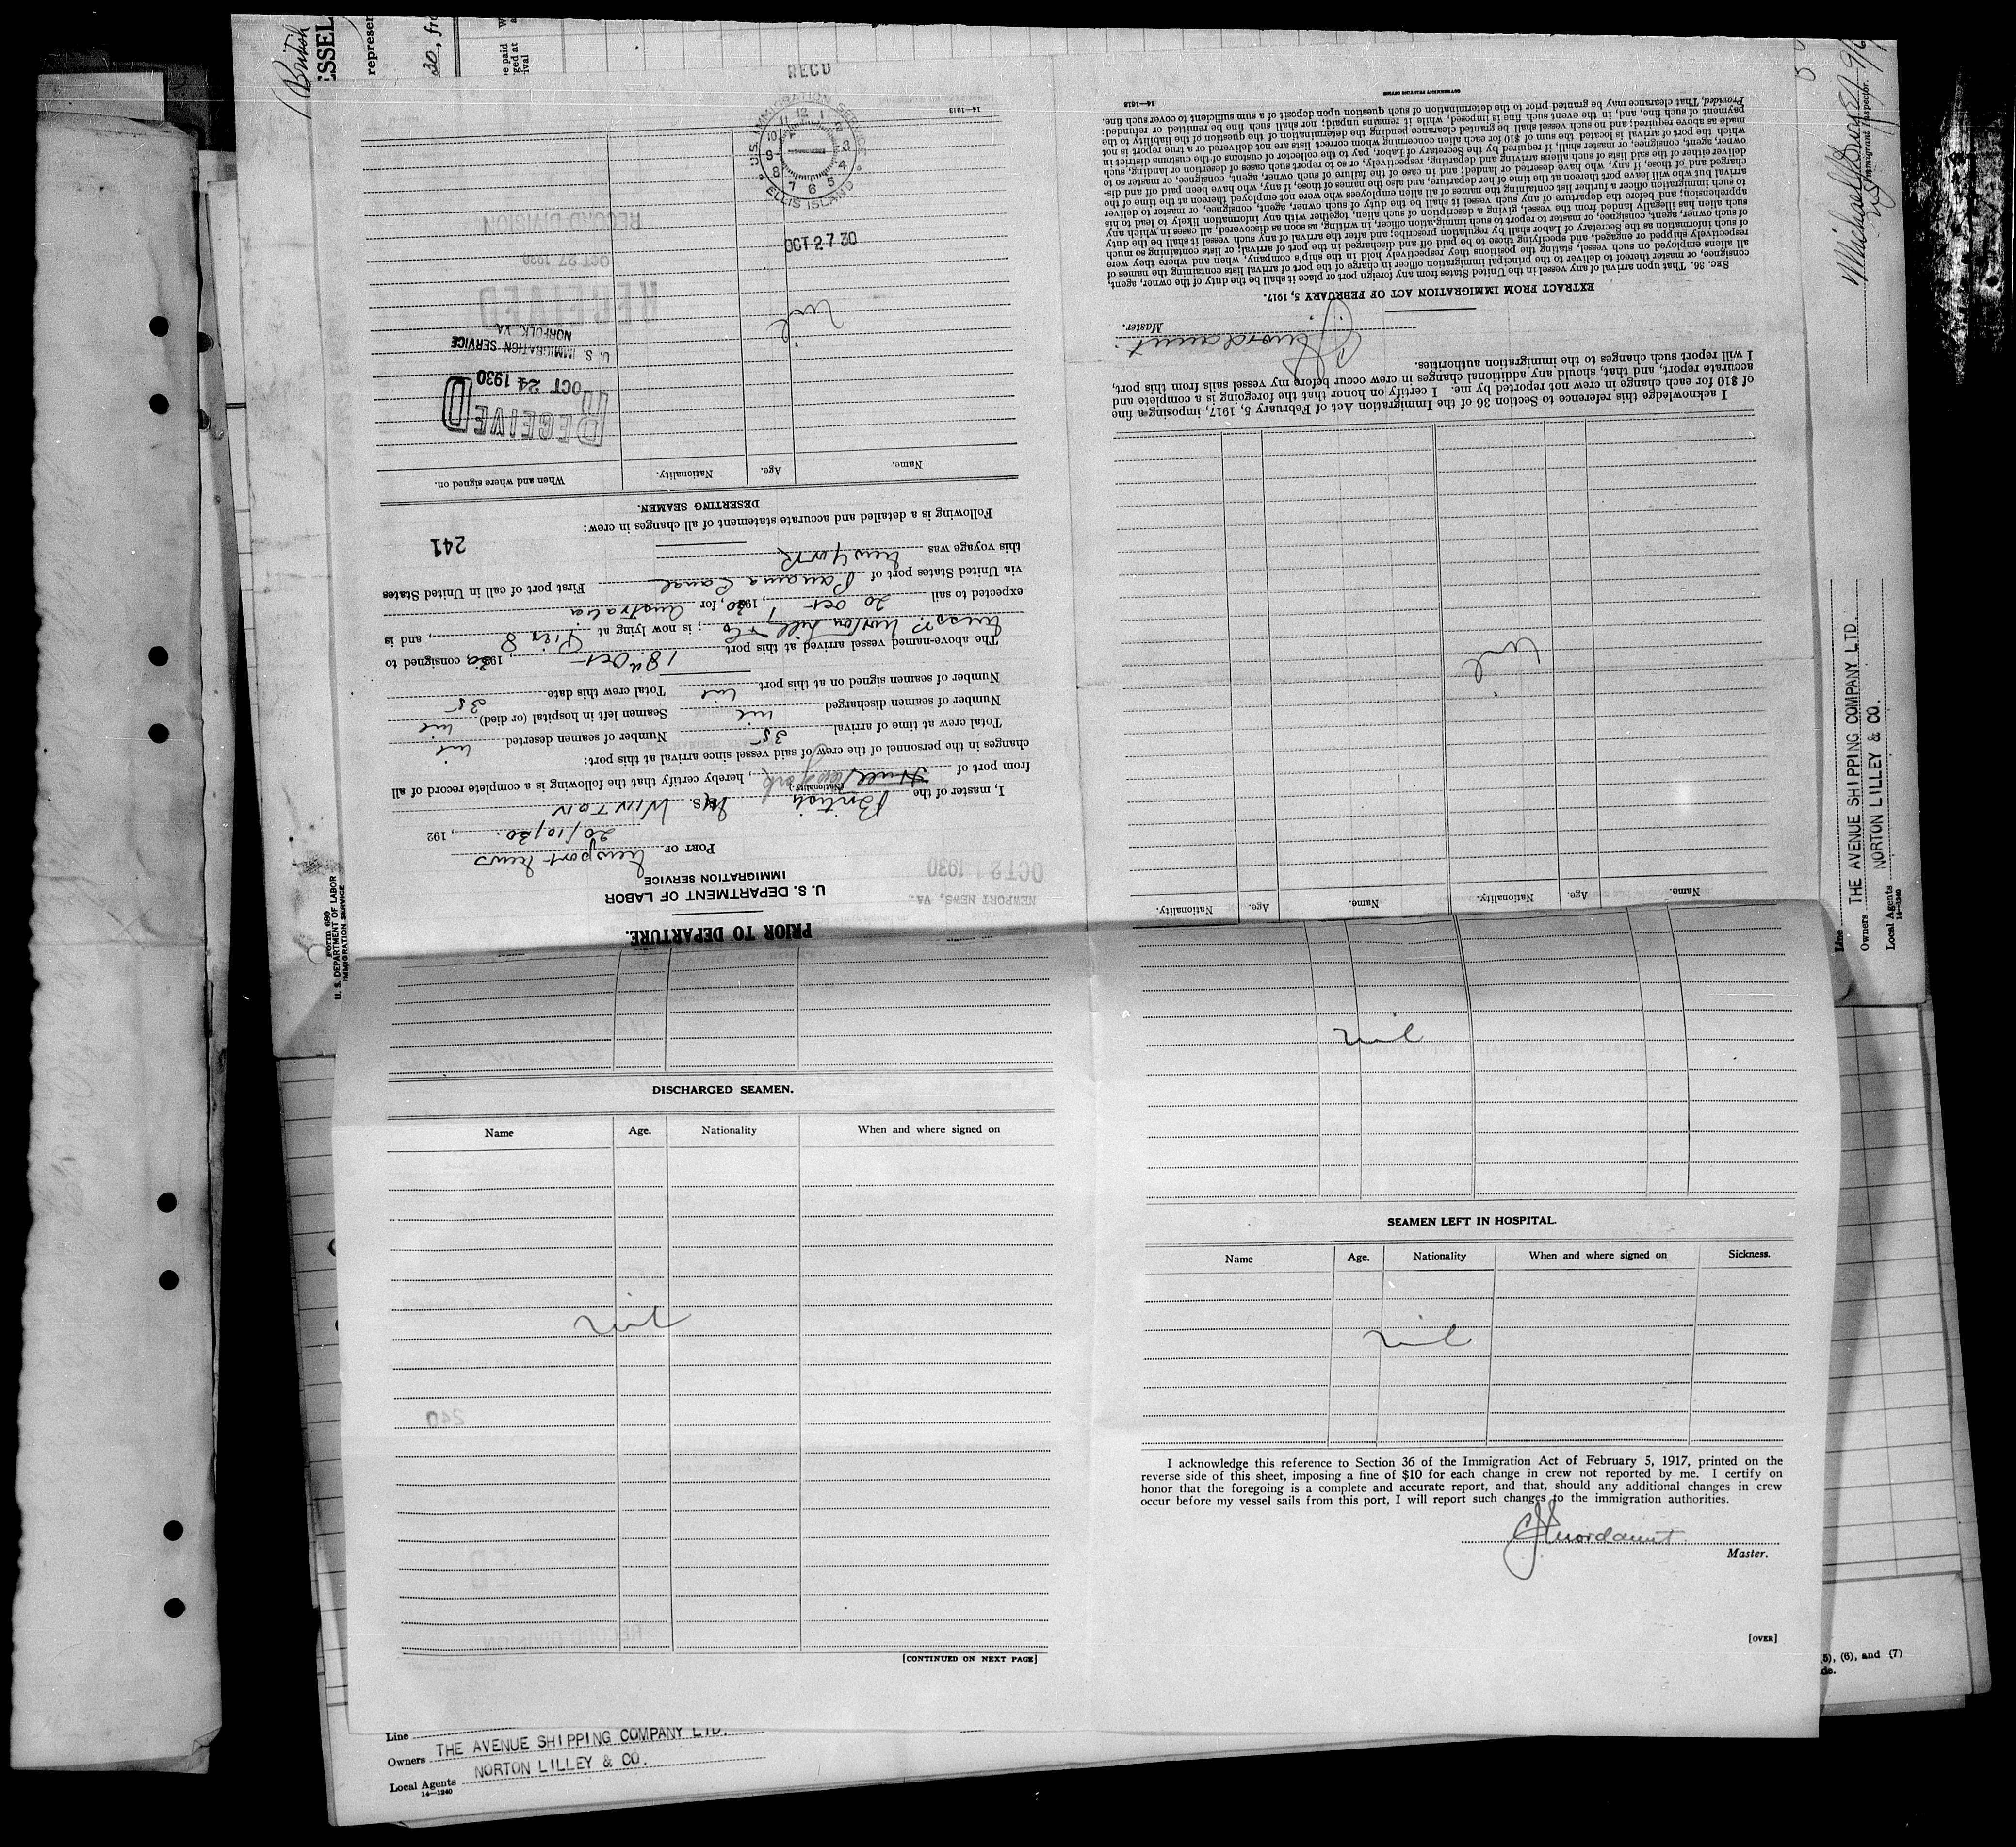 PRIOR TO DEPARTURE.
U. S. DEPARTMENT OF LABOR
IMMIGRATION SERVICE
NEWPORT NEWS, VA.
OCT 21 1930
PORT OF Newport News
20/10/30. , 192
I, master of the British M/S. WINTON
(Nationality)
from port of Hull New York, hereby certify that the following is a complete record of all
changes in the personnel of the crew of said vessel since arrival at this port:
Total crew at time of arrival 35 Number of seamen deserted nil
Number of seamen discharged nil Seamen left in hospital (or died) nil
Number of seamen signed on at this port nil Total crew this date 35
The above-named vessel arrived at this port 18th Oct , 1930 consigned to
Messrs Norton Lilly & Co ; is now lying at Pier 8 , and is
expected to sail 20 Oct , 1930, for Australia
via United States port of Panama Canal First port of call in United States
this voyage was New York
Following is a detailed and accurate statement of all changes in crew:
241
DESERTING SEAMEN.
Name. Age. Nationality. When and where signed on.
RECEIVED
OCT 24 1930
U. S. IMMIGRATION SERVICE
NORFOLK, VA.
nil
RECEIVED
OCT 27 1930
RECORD DIVISION
OCT 27 30
U.S. IMMIGRATION SERVICE
ELLIS ISLAND
RECD
14—1613
Name. Age. Nationality. Name. Age. Nationality.
nil
I acknowledge this reference to Section 36 of the Immigration Act of February 5, 1917, imposing a fine
of $10 for each change in crew not reported by me. I certify on honor that the foregoing is a complete and
accurate report, and that, should any additional changes in crew occur before my vessel sails from this port,
I will report such changes to the immigration authorities.
Master.
EXTRACT FROM IMMIGRATION ACT OF FEBRUARY 5, 1917.
SEC. 36. That upon arrival of any vessel in the United States from any foreign port or place it shall be the duty of the owner, agent,
consignee, or master thereof to deliver to the principal immigration officer in charge of the port of arrival lists containing the names of
all aliens employed on such vessel, stating the positions they respectively hold in the ship's company, when and where they were
respectively shipped or engaged, and specifying those to be paid off and discharged in the port of arrival; or lists containing so much
of such information as the Secretary of Labor shall by regulation prescribe; and after the arrival of any such vessel it shall be the duty
of such owner, agent, consignee, or master to report to such immigration officer, in writing, as soon as discovered, all cases in which any
such alien has illegally landed from the vessel, giving a description of such alien, together with any information likely to lead to his
apprehension; and before the departure of any such vessel it shall be the duty of such owner, agent, consignee, or master to deliver
to such immigration officer a further list containing the names of all alien employees who were not employed thereon at the time of the
arrival but who will leave port thereon at the time of her departure, and also the names of those, if any, who have been paid off and dis-
charged and of those, if any, who have deserted or landed; and in case of the failure of such owner, agent, consignee, or master so to
deliver either of the said lists of such aliens arriving and departing, respectively, or so to report such cases of desertion or landing, such
owner, agent, consignee, or master shall, if required by the Secretary of Labor, pay to the collector of customs of the customs district in
which the port of arrival is located the sum of $10 for each alien concerning whom correct lists are not delivered or a true report is not
made as above required; and no such vessel shall be granted clearance pending the determination of the question of the liability to the
payment of such fine, and, in the event such fine is imposed, while it remains unpaid; nor shall such fine be remitted or refunded:
Provided, That clearance may be granted prior to the determination of such question upon deposit of a sum sufficient to cover such fine.
14—1613
GOVERNMENT PRINTING OFFICE
DISCHARGED SEAMEN.
Name Age. Nationality When and where signed on
nil
240
[CONTINUED ON NEXT PAGE]
nil
SEAMEN LEFT IN HOSPITAL.
Name Age. Nationality When and where signed on Sickness.
nil
I acknowledge this reference to Section 36 of the Immigration Act of February 5, 1917, printed on the
reverse side of this sheet, imposing a fine of $10 for each change in crew not reported by me. I certify on
honor that the foregoing is a complete and accurate report, and that, should any additional changes in crew
occur before my vessel sails from this port, I will report such changes to the immigration authorities.
Master.
[OVER]
Line
Owners THE AVENUE SHIPPING COMPANY LTD.
Local Agents NORTON LILLEY & CO.
14—1240
(5), (6), and (7)
Line
Owners THE AVENUE SHIPPING COMPANY LTD.
Local Agents NORTON LILLEY & CO.
14—1240
Immigrant Inspector.
Form 680
U. S. DEPARTMENT OF LABOR
IMMIGRATION SERVICE
(British
represen